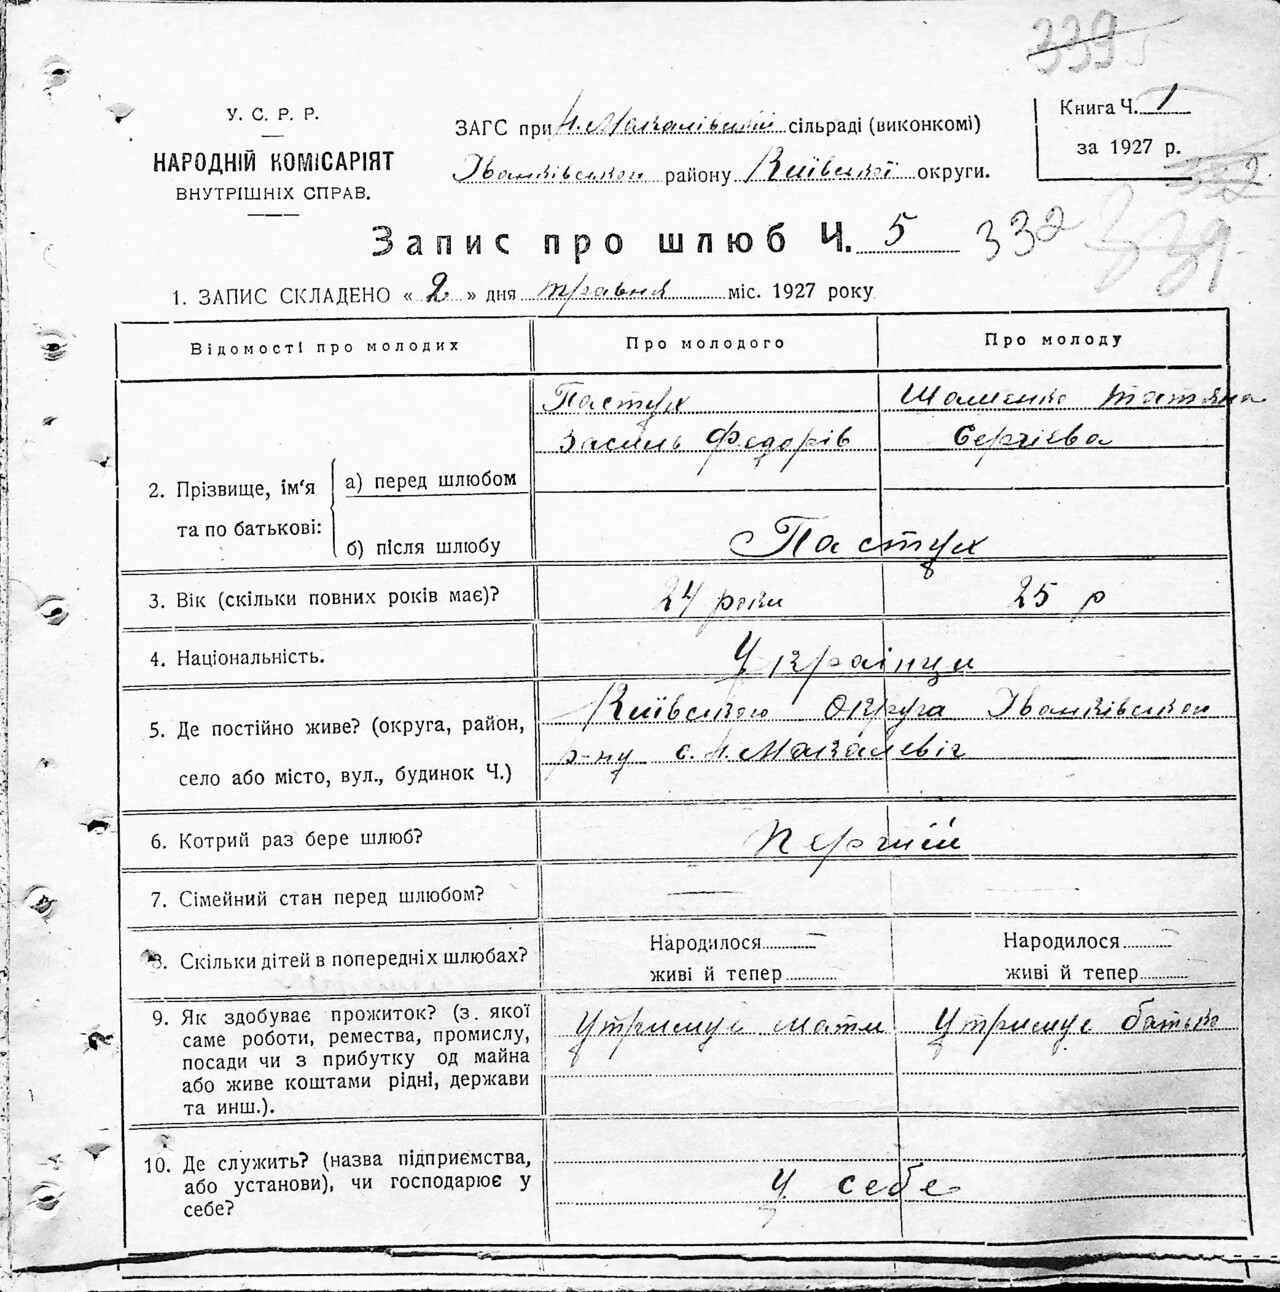 339
У. С. Р. Р.
НАРОДНІЙ КОМІСАРІЯТ
ВНУТРІШНІХ СПРАВ.
ЗАГС при Н. Макалівській сільраді (виконкомі)
Іванківськои району Київської округи.
Книга Ч. 1
за 1927 р.
332
Запис про шлюб Ч. 5 332 339
1. ЗАПИС СКЛАДЕНО « 2 » дня травня міс. 1927 року
Відомості про молодих Про молодого Про молоду
Пастух Шоменко Татьяна
Василь Федорів Сергієва
2. Прізвище, ім'я та по батькові:
а) перед шлюбом
б) після шлюбу Пастух
3. Вік (скільки повних років має)? 24 роки 25 р
4. Національність. Українци
5. Де постійно живе? (округа, район, Київською округа Іванківськои
село або місто, вул., будинок Ч.) р-ну с. Н. Макалевіч
6. Котрий раз бере шлюб? Перший
7. Сімейний стан перед шлюбом? —
8. Скільки дітей в попередніх шлюбах? Народилося — Народилося —
живі й тепер живі й тепер
9. Як здобуває прожиток? (з якої Утримує мати Утримує батько
саме роботи, ремества, промислу,
посади чи з прибутку од майна
або живе коштами рідні, держави
та инш.).
10. Де служить? (назва підприємства,
або установи), чи господарює у У себе
себе?